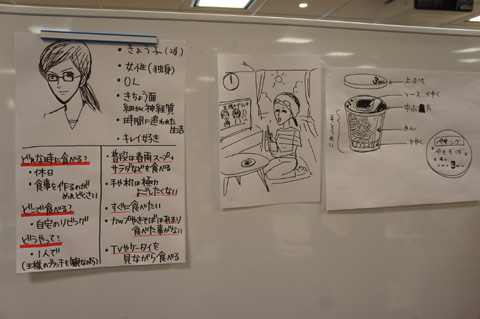 ・きょう子(28)
・女性(独身)
・OL
・きちょう面
細かく神経質
・時間に追われた
生活
・キレイ好き
どんな時に食べる?
・休日
・食事を作るのが
めんどくさい
どこで食べる?
・自宅のリビング
どうやって?
・1人で
・普段は春雨スープや
サラダなどを食べる
・手や机は極力
汚したくない
・すぐに食べたい
・カップやきそばはあまり
食べた事がない
・TVやケータイを
見ながら食べる
上ぶた
ソース、かやく
中ぶた
めん
かやく
やきそば